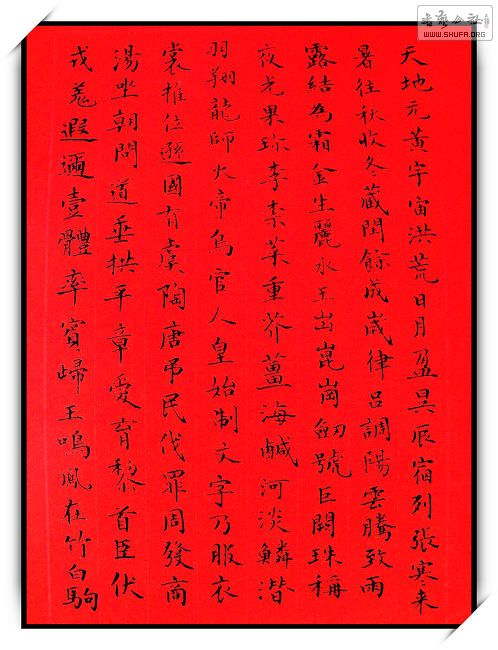 天地元黃宇宙洪荒日月盈昃辰宿列張寒来
暑往秋收冬藏閏餘成歲律呂調陽雲騰致雨
露結為霜金生麗水玉出崑崗劒號巨闕珠稱
夜光果珍李柰菜重芥薑海鹹河淡鱗潛
羽翔龍師火帝鳥官人皇始制文字乃服衣
裳推位遜國有虞陶唐弔民伐罪周發商
湯坐朝問道垂拱平章愛育黎首臣伏
戎羌遐邇壹體率賓歸王鳴鳳在竹白駒
WWW.SHUFA.ORG